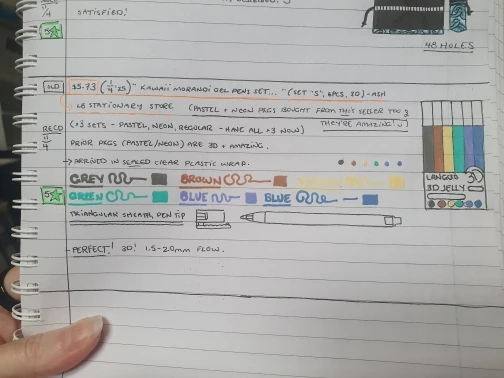 11/4 SATISFIED!
5☆
48 HOLES
OLD $5.73 (1/4 '25) "KAWAII MORANDI GEL PENS SET... "(SET "S", 6PCS, 3D) - ASH
LB STATIONARY STORE (PASTEL + NEON PKGS BOUGHT FROM THIS SELLER TOO
(×3 SETS - PASTEL, NEON, REGULAR - HAVE ALL ×3 NOW) THEY'RE AMAZING!
RECD 11/4 PRIOR PKGS (PASTEL/NEON) ARE 3D + AMAZING.
→ ARRIVED IN SEALED CLEAR PLASTIC WRAP.
GREY BROWN
5☆ GREEN BLUE BLUE
LANGED 3D
3D JELLY
TRIANGULAR SHEATH, PEN TIP
- PERFECT! 3D! 1.5-2.0mm FLOW.